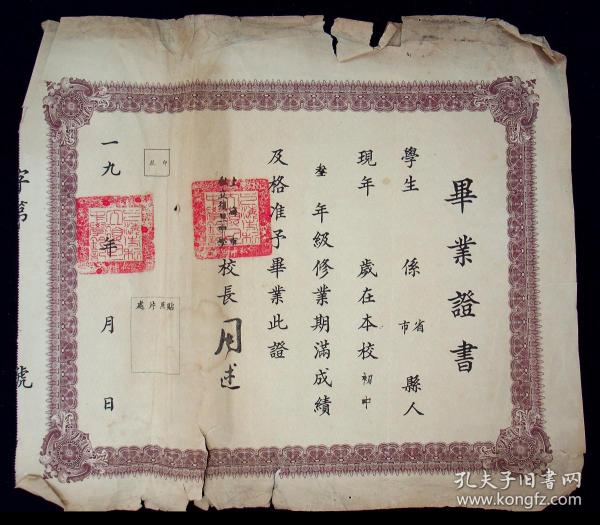 畢業證書
學生 係 省市 縣人
現年 歲在本校初中
叁年級修業期滿成績
及格准予畢業此證
上海市
校長 周述
印 鈐
貼照片處
一九 年 月 日
字第 號
孔夫子旧书网
www.kongfz.com